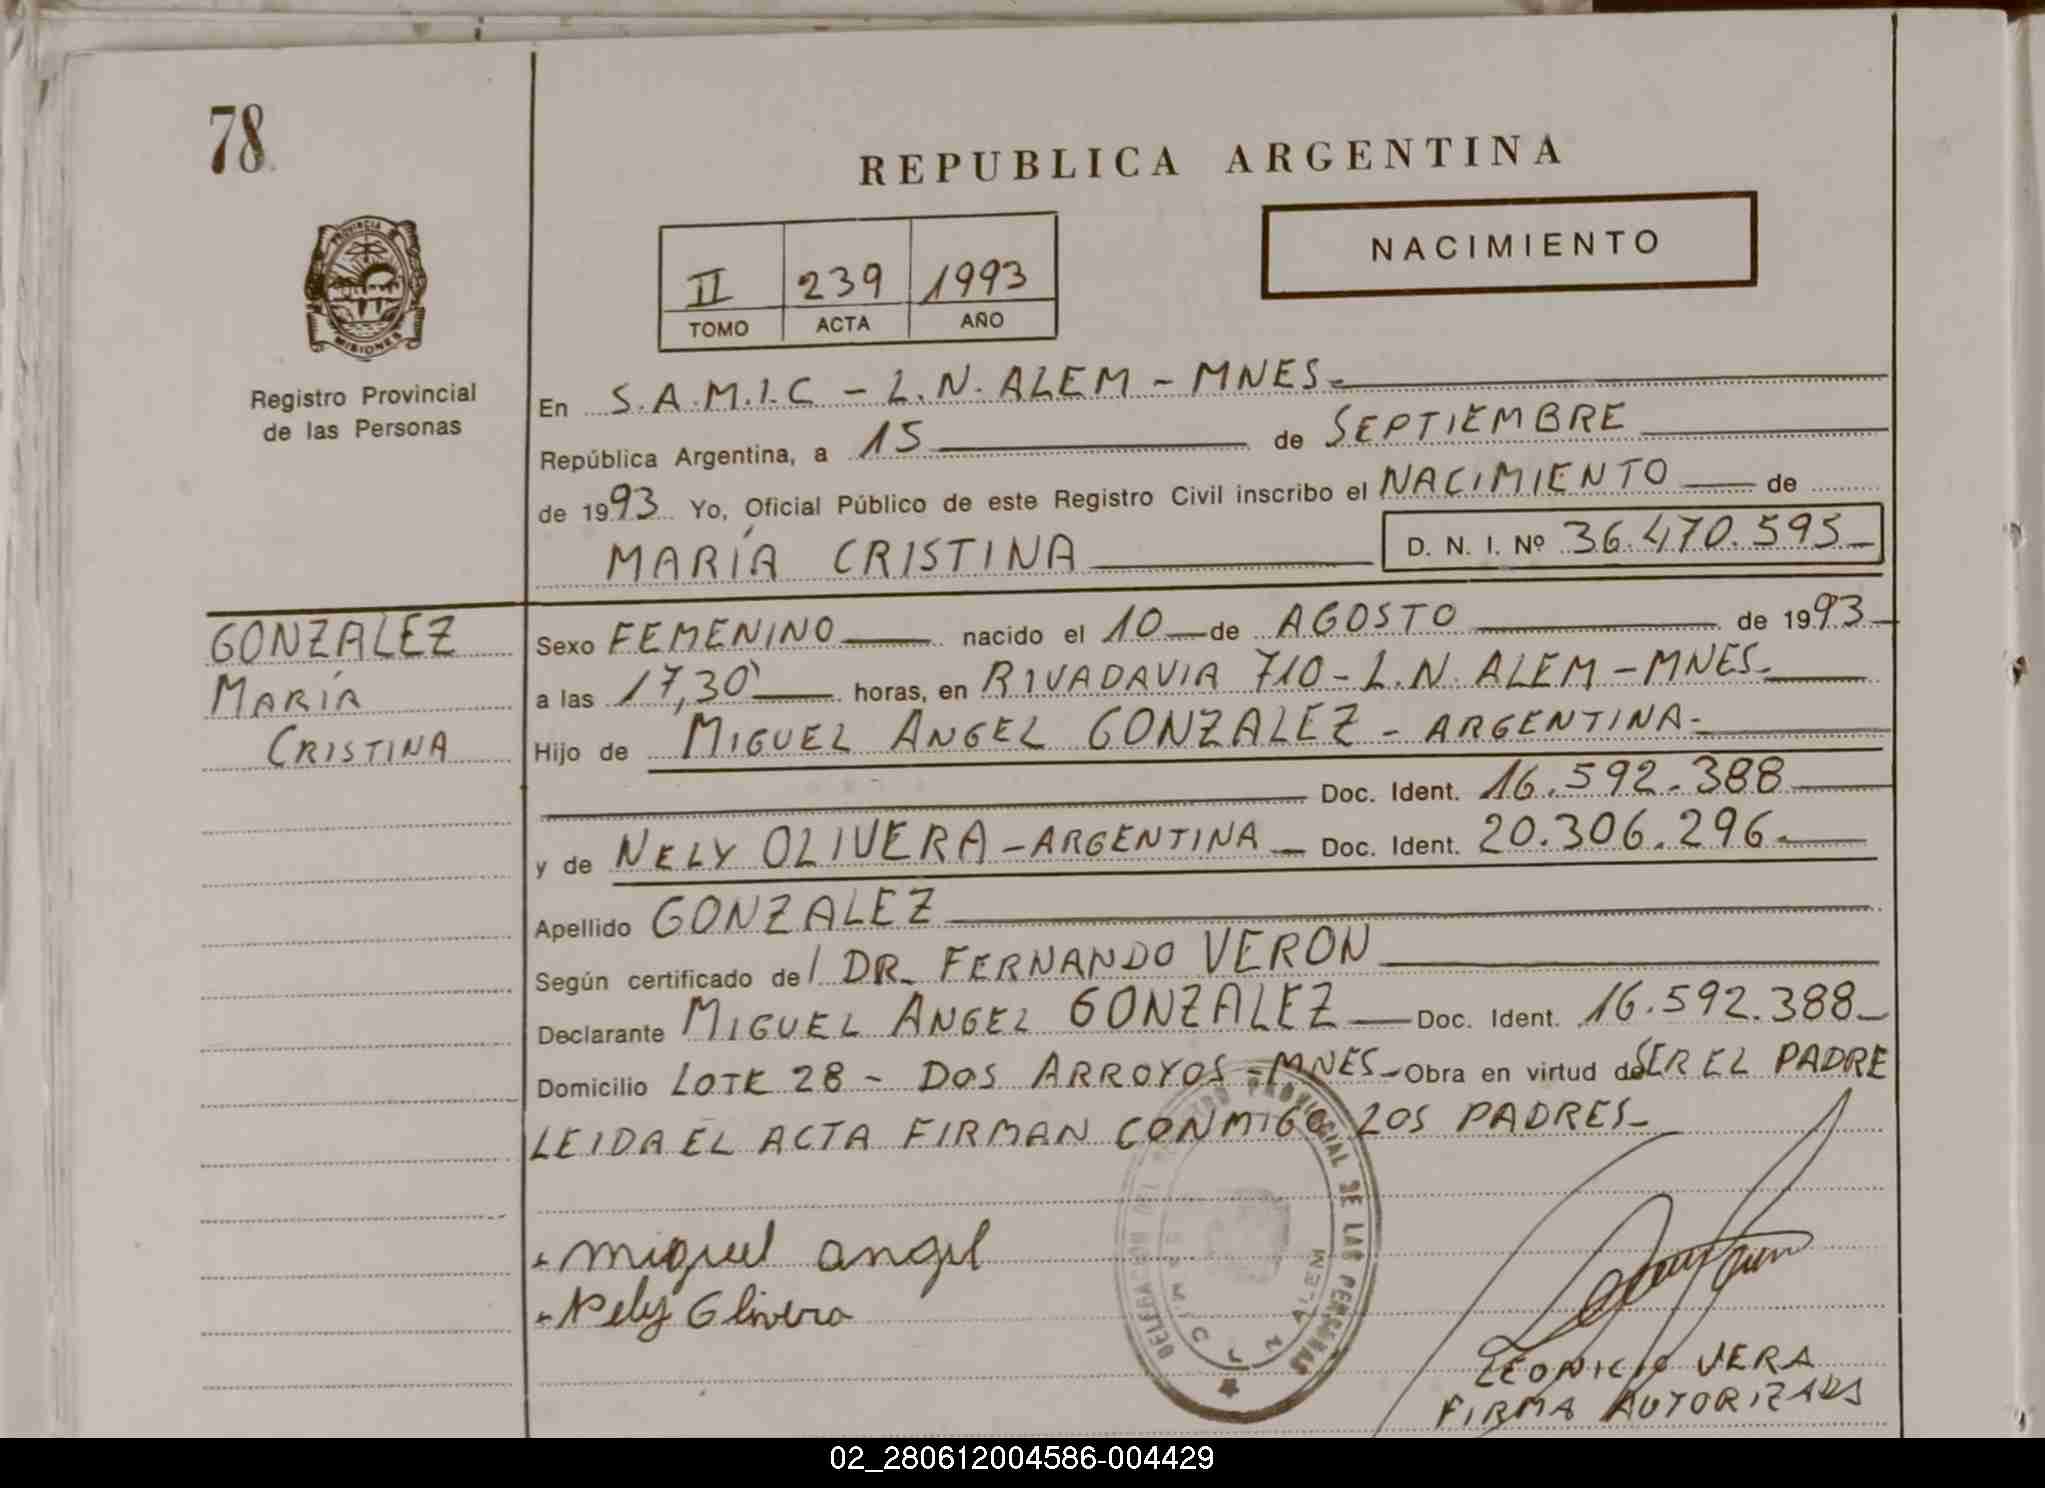 78
REPUBLICA ARGENTINA
NACIMIENTO
II 239 1993
TOMO ACTA AÑO
PROVINCIA DE
MISIONES
Registro Provincial
de las Personas
En S.A.M.I.C - L.N. ALEM - MNES-
República Argentina, a 15 de SEPTIEMBRE
de 1993 Yo, Oficial Público de este Registro Civil inscribo el NACIMIENTO de
MARÍA CRISTINA D. N. I. Nº 36.470.595
GONZALEZ
MARÍA
CRISTINA
Sexo FEMENINO nacido el 10 de AGOSTO de 1993
a las 17,30 horas, en RIVADAVIA 710 - L.N. ALEM - MNES-
Hijo de MIGUEL ANGEL GONZALEZ - ARGENTINA-
Doc. Ident. 16.592.388
y de NELY OLIVERA - ARGENTINA Doc. Ident. 20.306.296-
Apellido GONZALEZ
Según certificado del DR. FERNANDO VERON
Declarante MIGUEL ANGEL GONZALEZ Doc. Ident. 16.592.388
Domicilio LOTE 28 - DOS ARROYOS - MNES- Obra en virtud de SER EL PADRE
LEIDA EL ACTA FIRMAN CONMIGO LOS PADRES-
miguel angel
Nely Olivera
DELEGACION DEL REGISTRO PROVINCIAL DE LAS PERSONAS
L N ALEM
LEONICIO VERA
FIRMA AUTORIZADA
02_280612004586-004429